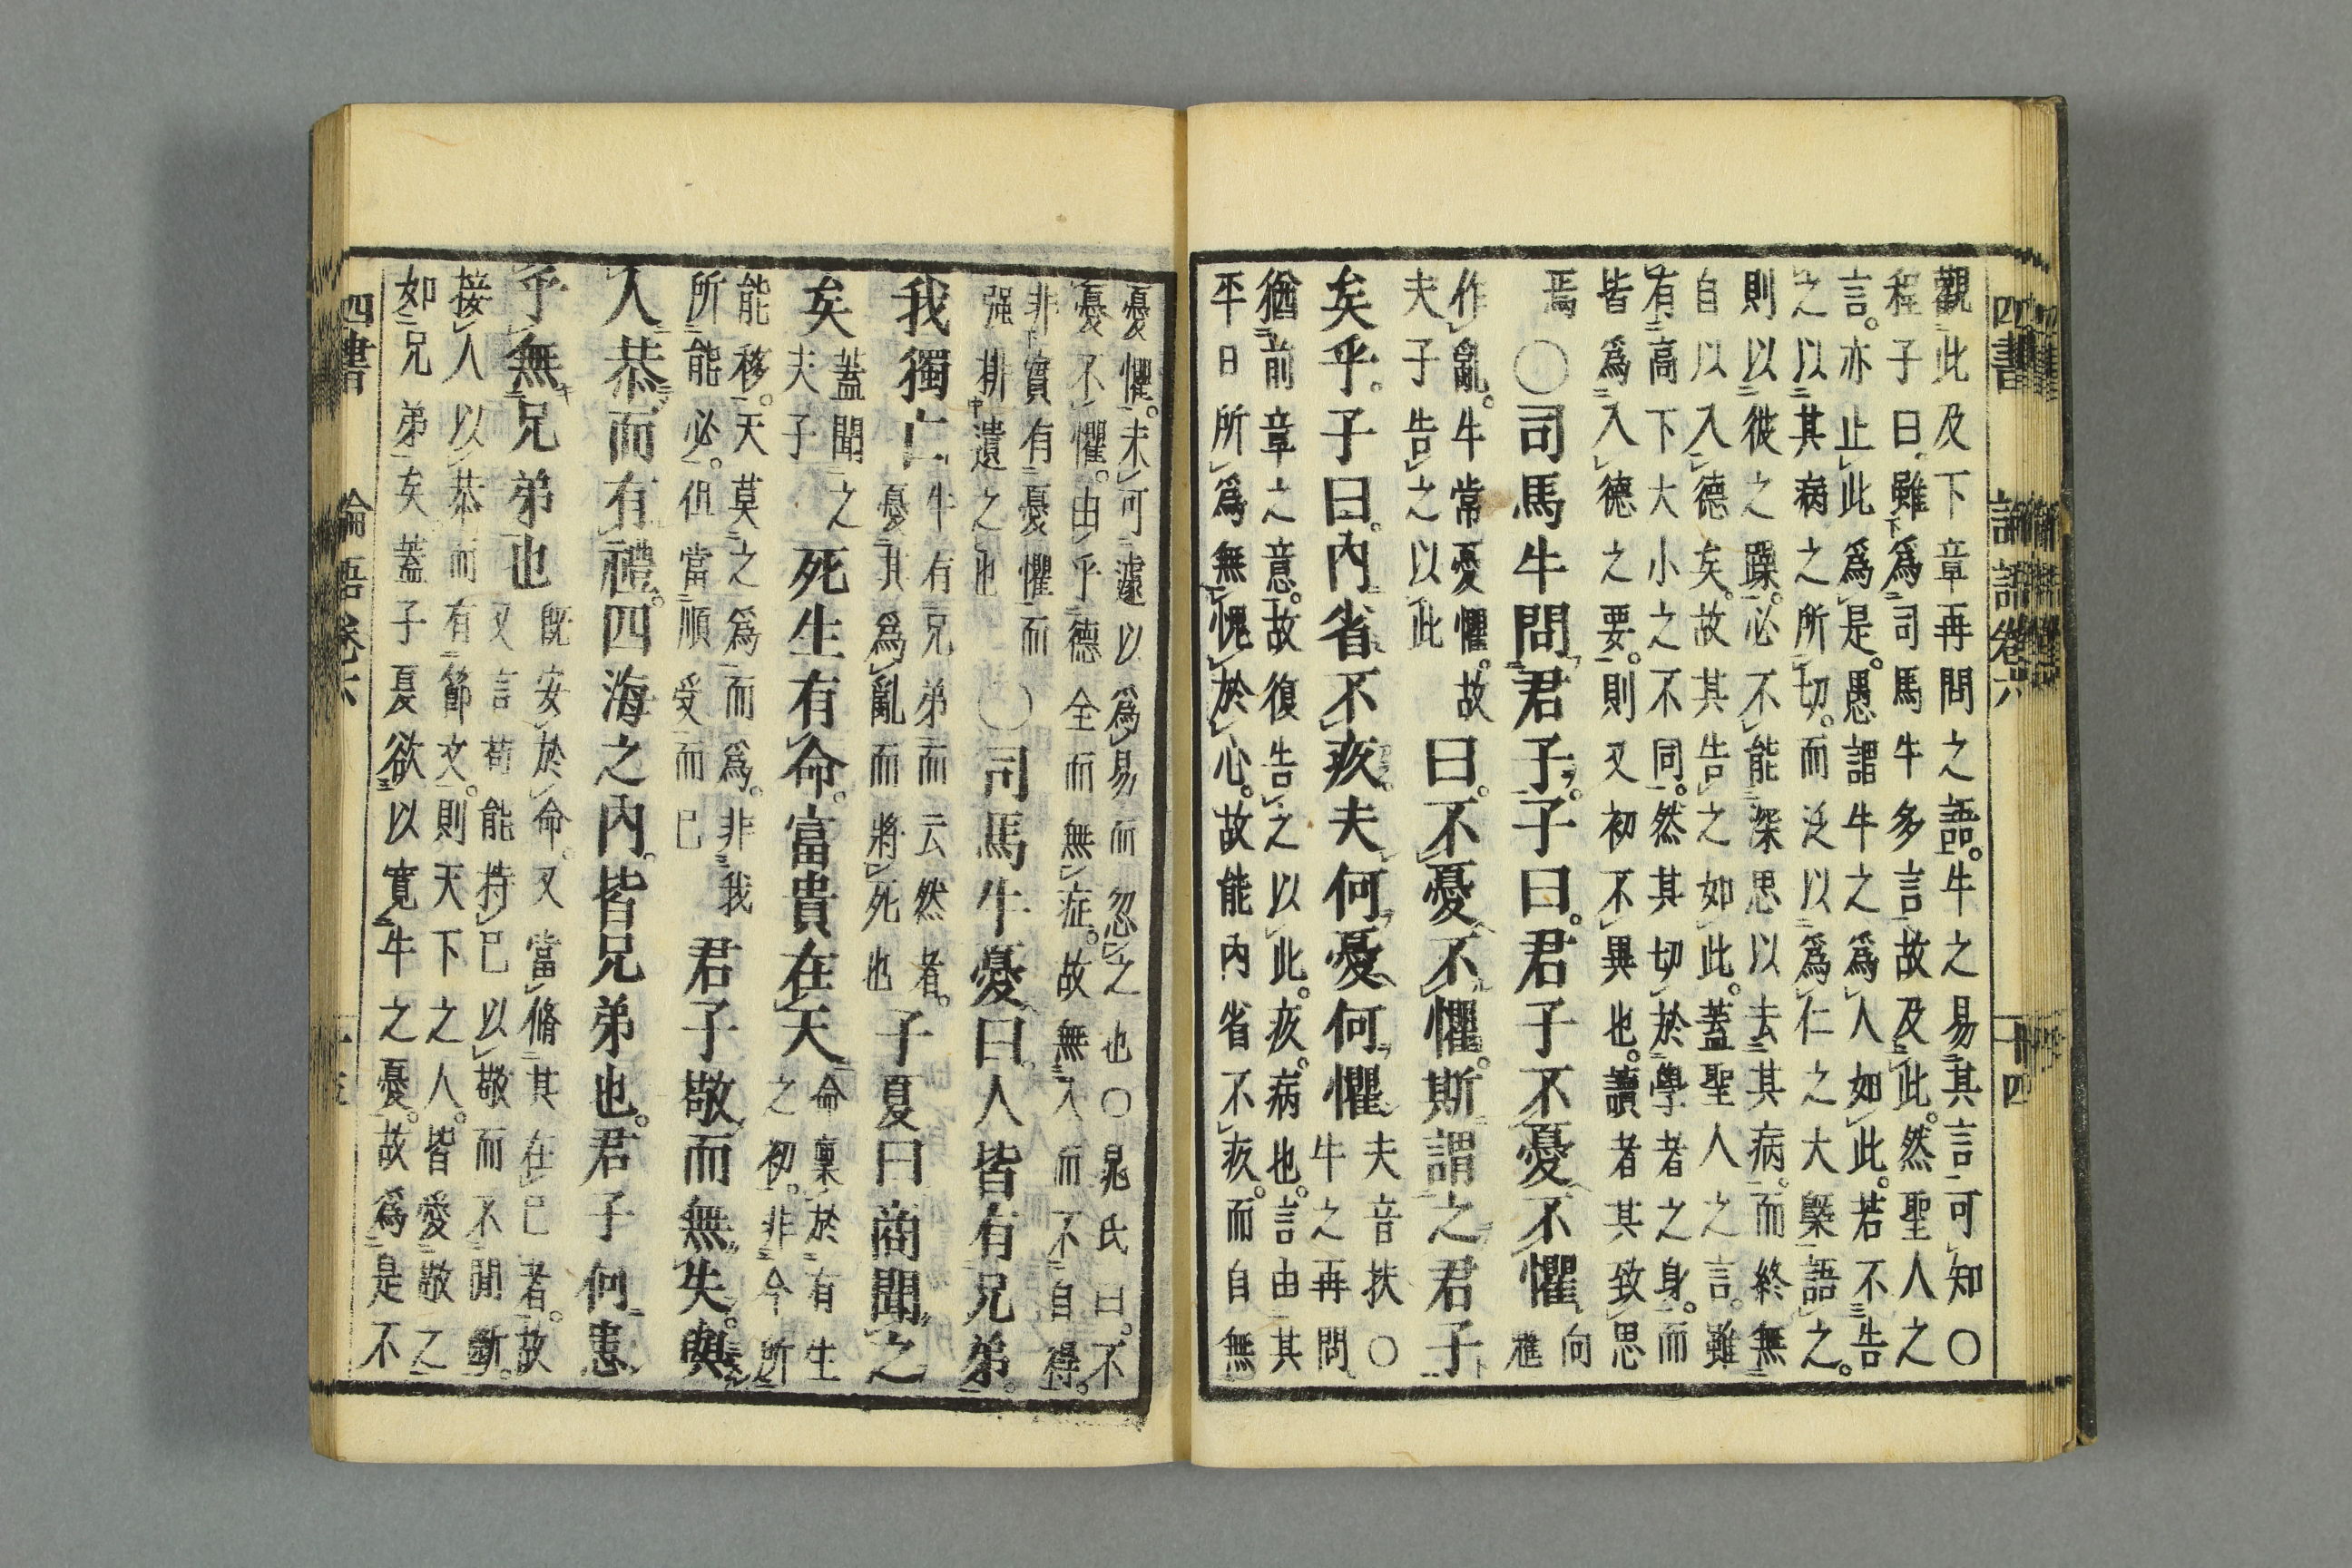 四書 論語卷六 十四
觀此及下章再問之語。牛之易其言可知〇
程子曰。雖爲司馬牛多言故及此。然聖人之
言。亦止此爲是。愚謂牛之爲人如此。若不告
之以其病之所切。而泛以爲仁之大槩語之。
則以彼之躁。必不能深思以去其病。而終無
自以入德矣。故其告之如此。蓋聖人之言。雖
有高下大小之不同。然其切於學者之身。而
皆爲入德之要。則又初不異也。讀者其致思
焉 〇司馬牛問君子。子曰。君子不憂不懼 向魋
作亂。牛常憂懼。故夫子告之以此 曰。不憂不懼。斯謂之君子
矣乎。子曰。內省不疚。夫何憂何懼 夫音扶〇牛之再問
猶前章之意。故復告之以此。疚。病也。言由其
平日所爲無愧於心。故能內省不疚。而自無
憂懼。未可遽以爲易而忽之也〇晁氏曰。不
憂不懼。由乎德全而無症。故無入而不自得。
非實有憂懼而强排遣之也 〇司馬牛憂曰。人皆有兄弟。
我獨亡 牛有兄弟而云然者。憂其爲亂而將死也 子夏曰商聞之
矣 蓋聞之夫子 死生有命。富貴在天 命稟於有生之初。非今所
能移。天莫之爲而爲。非我所能必。但當順受而已 君子敬而無失。與
人恭而有禮。四海之內。皆兄弟也。君子何患
乎無兄弟也 既安於命。又當脩其在己者。故又言苟能持己以敬而不閒斷。
接人以恭而有節文。則天下之人。皆愛敬之
如兄弟矣蓋子夏欲以寬牛之憂。故爲是不
四書 論語卷六